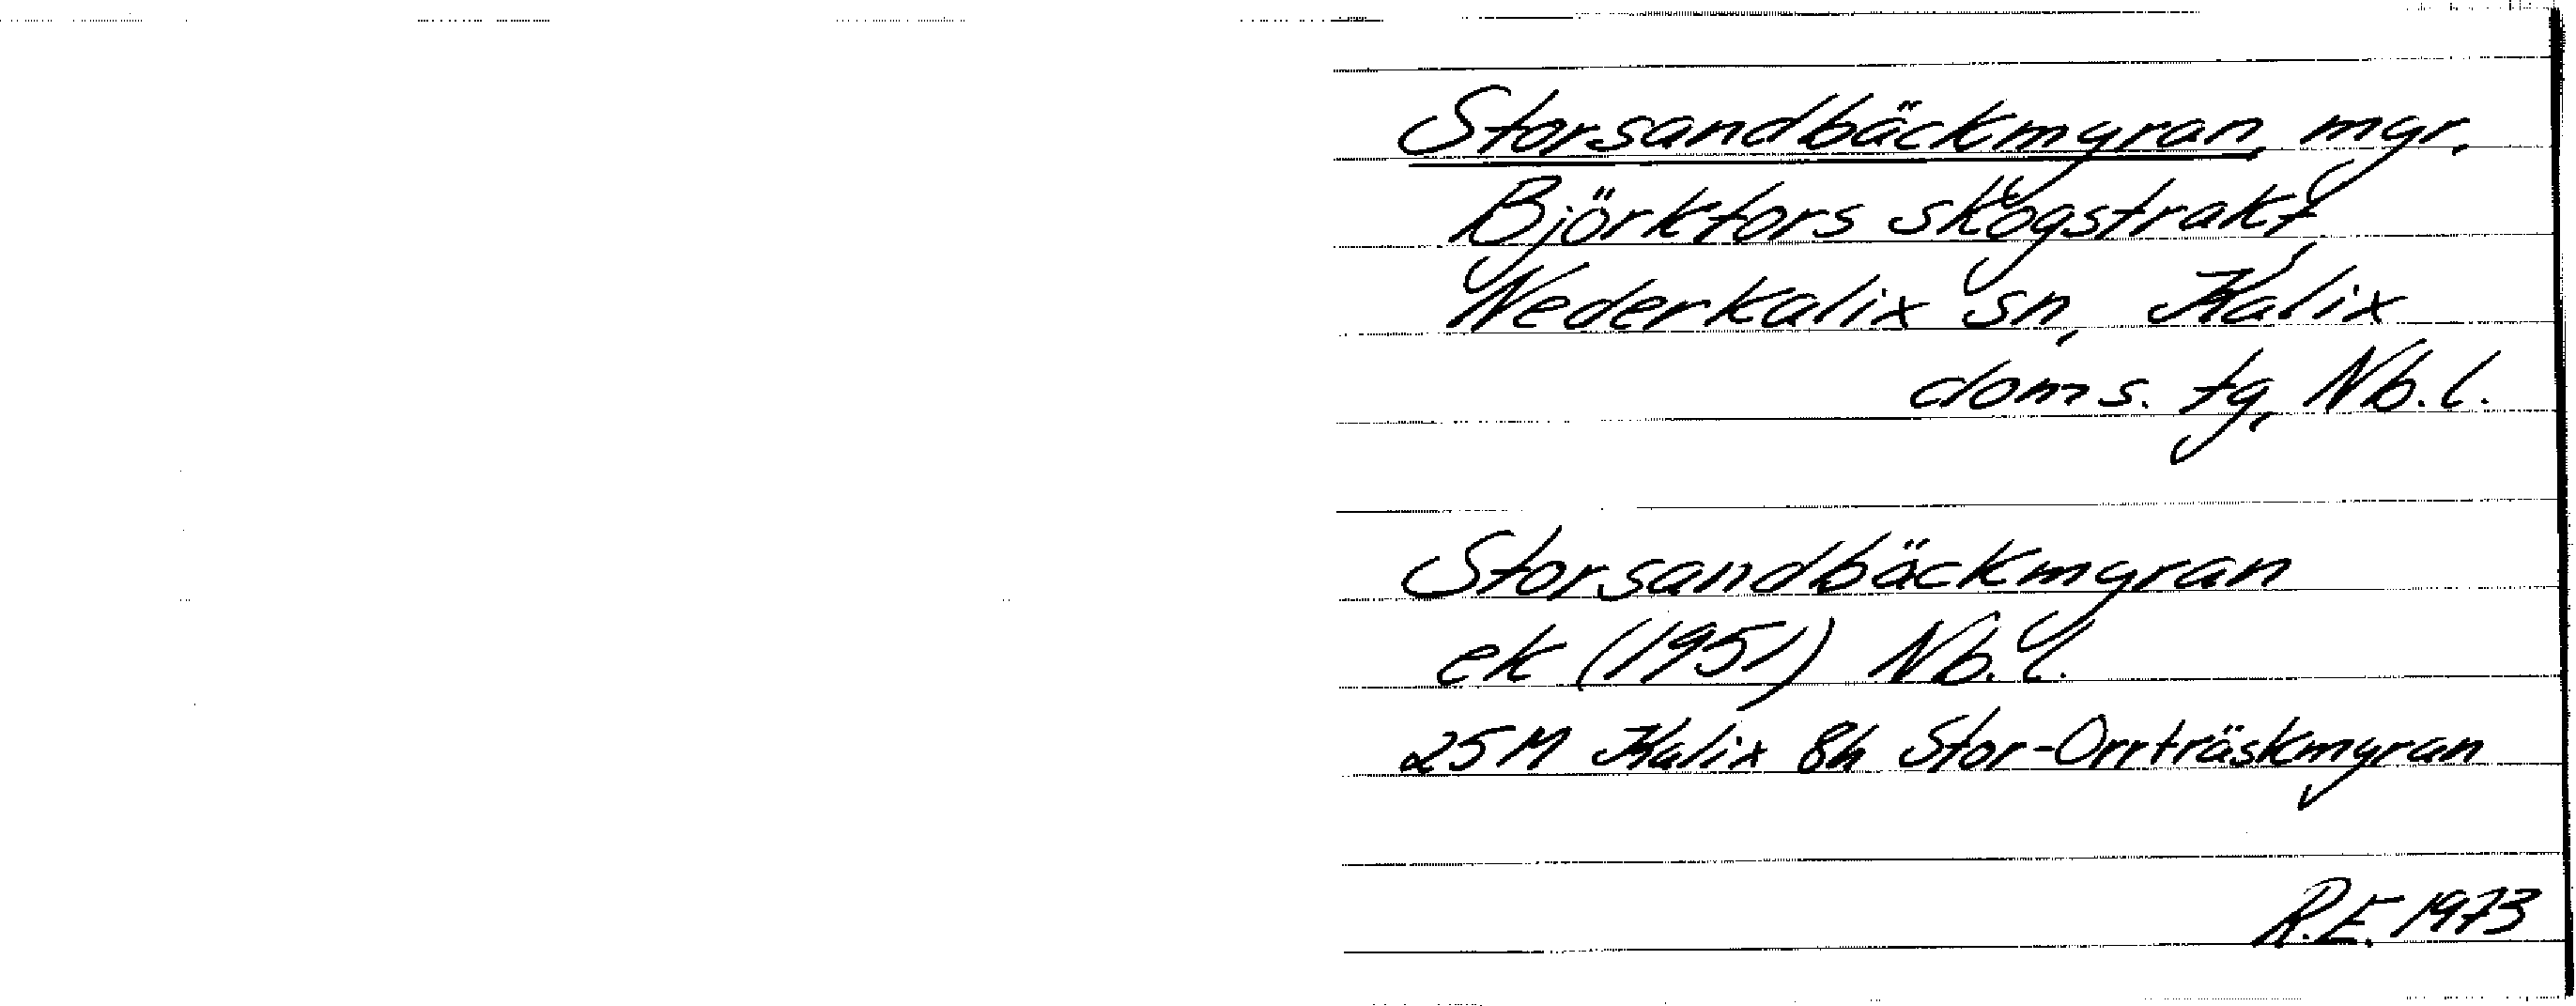 Storsandbäckmyran, myr,
Björkfors skogstrakt,
Nederkalix sn, Kalix
doms. tg, Nb.l.
Storsandbäckmyran
ek (1951) Nb.l.
25M Kalix 8h Stor-Orrträskmyran
R.E. 1973